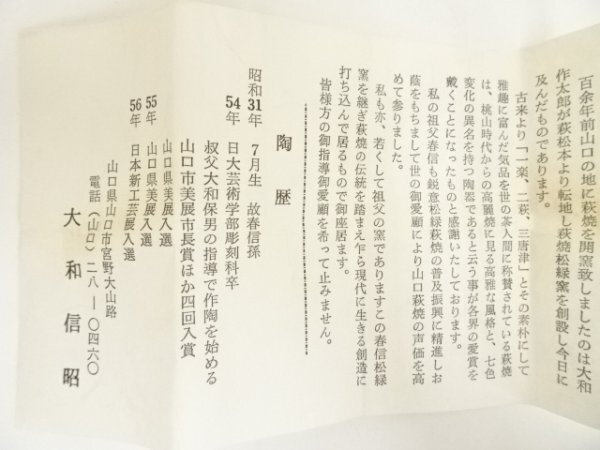 百余年前山口の地に萩焼を開窯致しましたのは大和
作太郎が萩松本より転地し萩焼松緑窯を創設し今日に
及んだものであります。
古来より「一楽、二萩、三唐津」とその素朴にして
雅趣に富んだ気品を世の茶人間に称賛されている萩焼
は、桃山時代からの高麗焼に見る高雅な風格と、七色
変化の異名を持つ陶器であると云う事が各界の愛賞を
戴くことになったものと感謝いたしております。
私の祖父春信も鋭意松緑萩焼の普及振興に精進しお
蔭をもちまして世の御愛顧により山口萩焼の声価を高
めて参りました。
私も亦、若くして祖父の窯でありますこの春信松緑
窯を継ぎ萩焼の伝統を踏まえ乍ら現代に生きる創造に
打ち込んで居るもので御座居ます。
皆様方の御指導御愛顧を希って止みません。
陶歴
昭和31年 7月生 故春信孫
54年 日大芸術学部彫刻科卒
叔父大和保男の指導で作陶を始める
山口市美展市長賞ほか四回入賞
山口県美展入選
55年 山口県美展入選
56年 日本新工芸展入選
山口県山口市宮野大山路
電話（山口）二八―〇四六〇
大和信昭